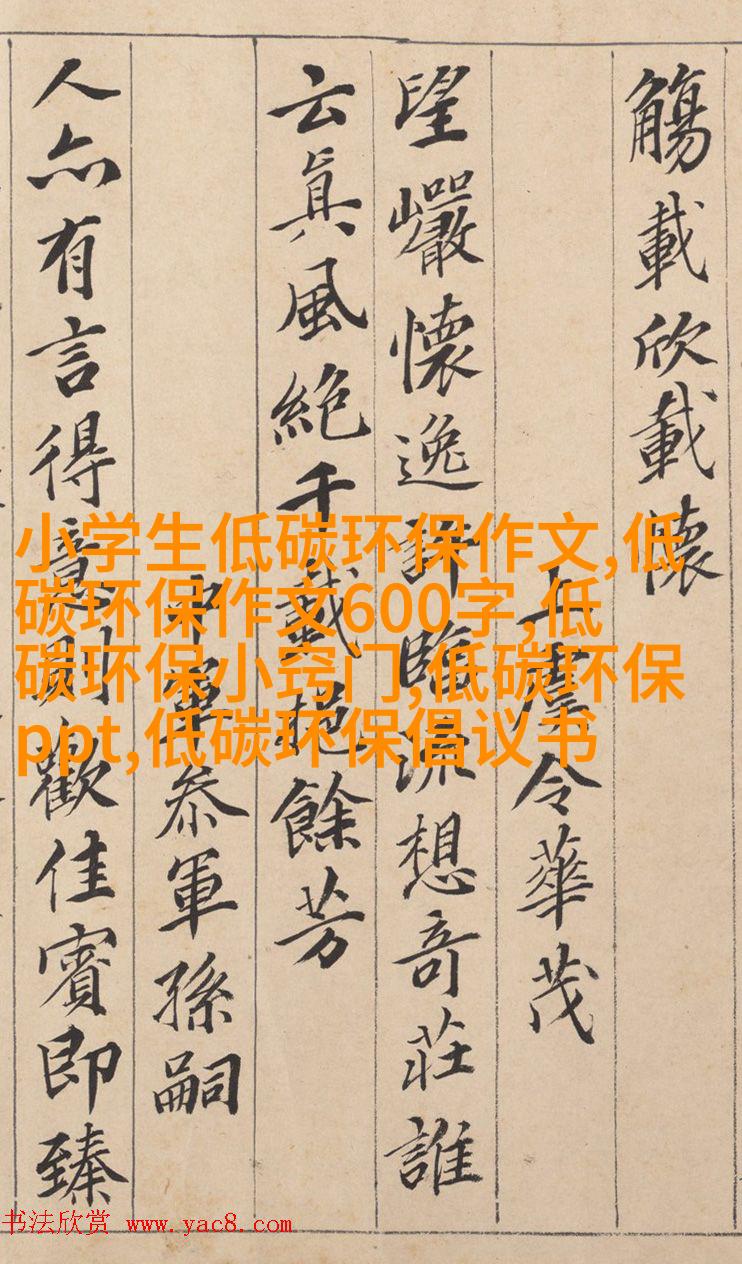 觴載欣載懷
上虞令華茂
望巖懷逸許臨流想奇莊誰
云眞風絶千載挹餘芳
中軍叅軍孫嗣
人亦有言得意則歡佳賓即臻
小学生低碳环保作文,低
碳环保作文600字,低
碳环保小窍门,低碳环保
ppt,低碳环保倡议书
书法欣赏 www.yac8.com